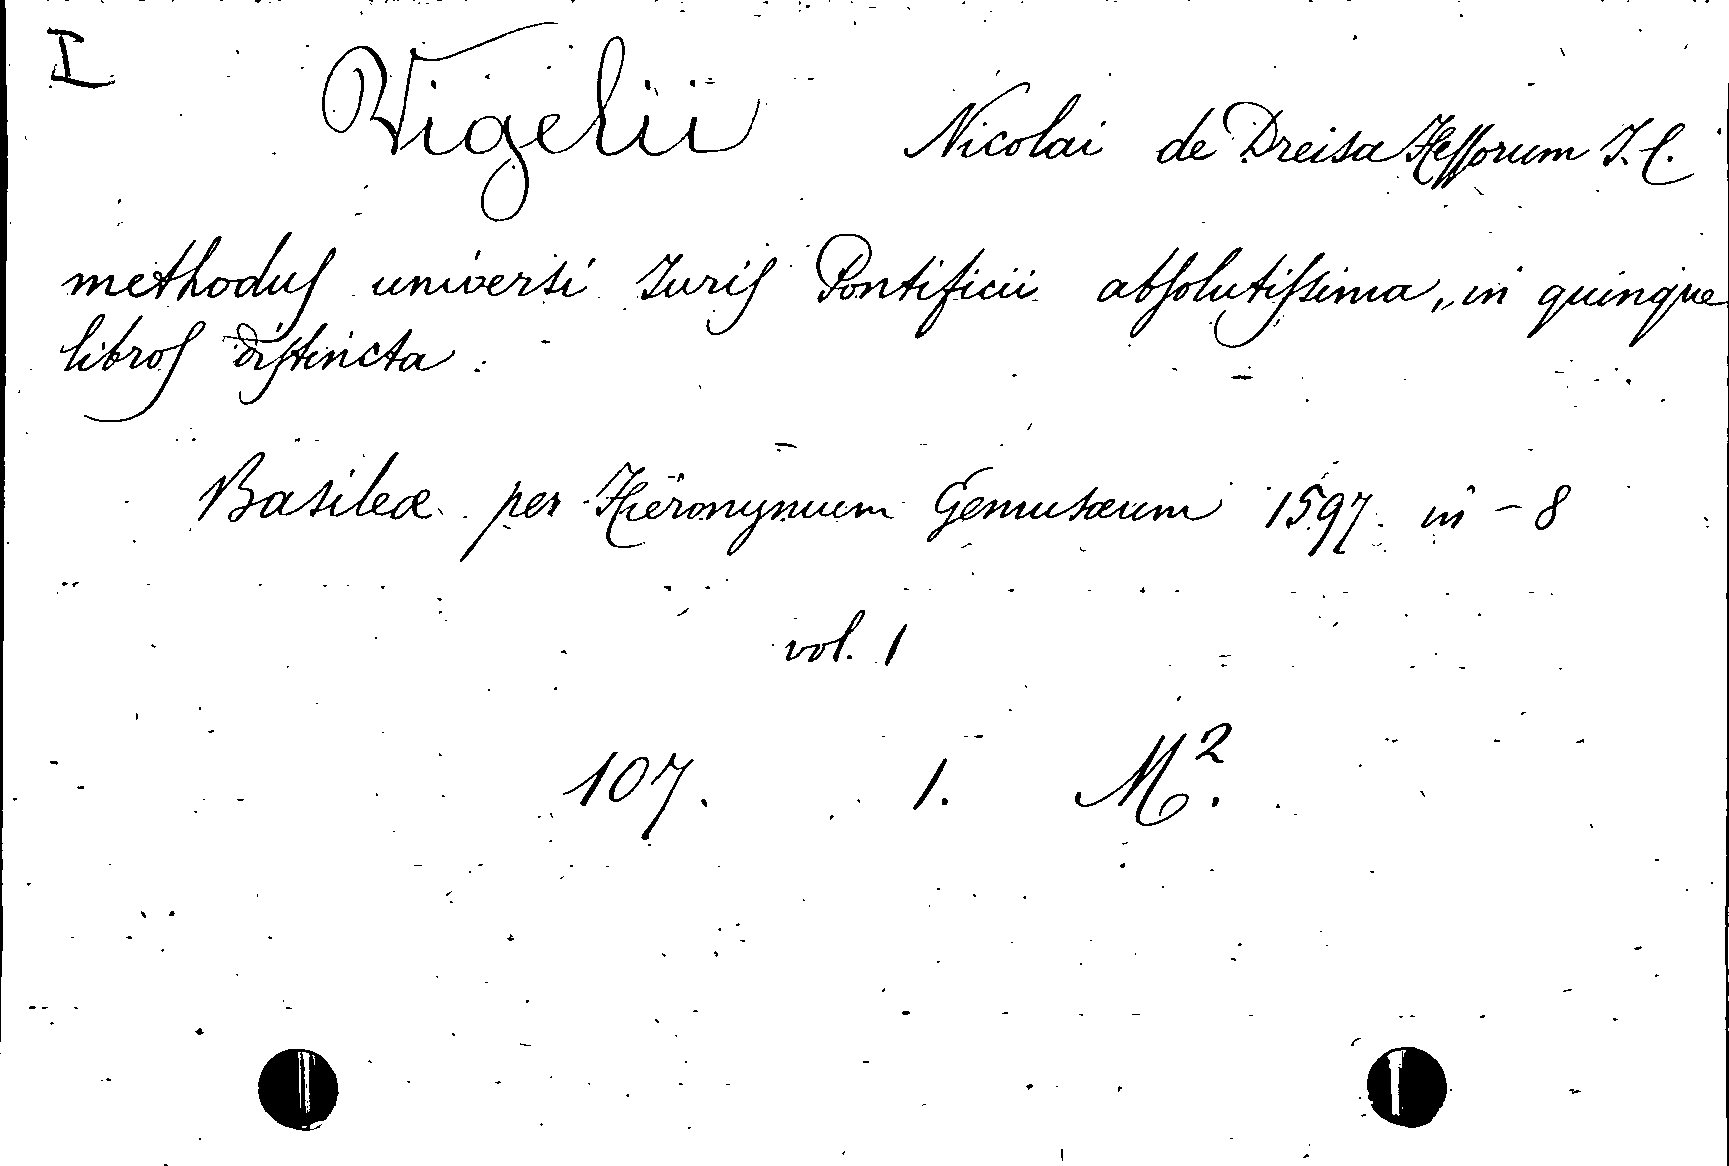 I
Vigelii Nicolai de Dreisa Hessorum I. C.
methodus universi Iuris Pontificii absolutissima, in quinque
libros distincta.
Basileæ per Hieronymum Gemusæum 1597. in - 8
vol. 1
107. 1. M².